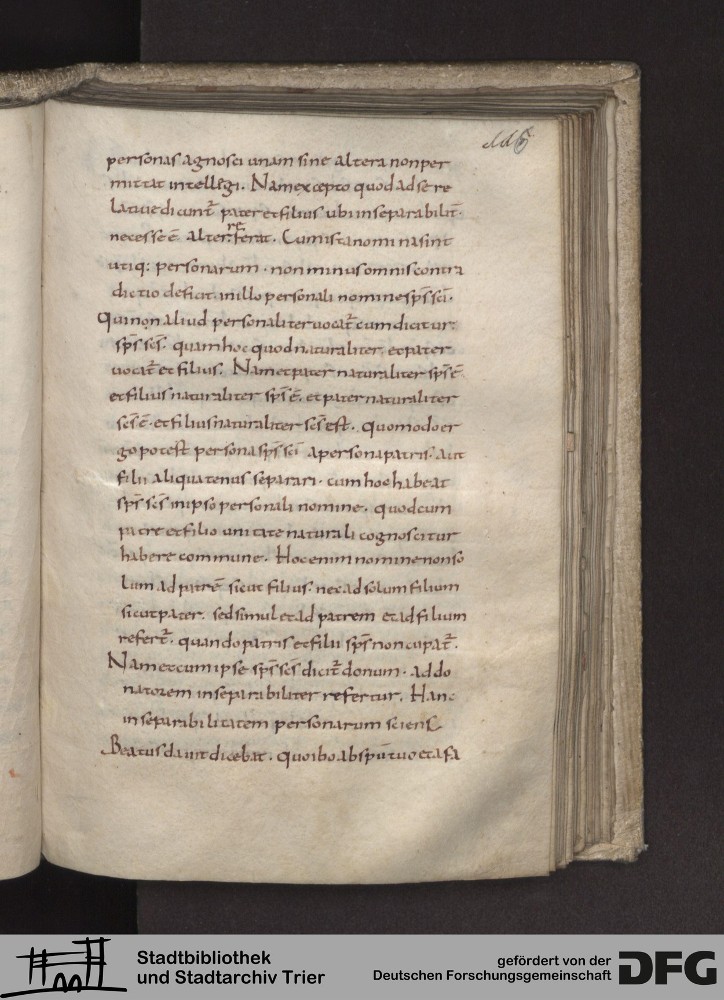 personas agnosci unam sine altera nonper
mittat intellegi. Nam excepto quod ad se re
lative dicunt̄ pater et filius ubi inseparabilit̄
necesse ē alter refferat. Cum ista nomina sint
utiq: personarum. non minus omnis contra
dictio deficit. in illo personali nomine sp̄s sc̄i.
Qui non aliud personaliter vocat̄ cum dicitur
sp̄s sc̄s. quam hoc quod naturaliter et pater
vocat̄ et filius. Nam et pater naturaliter sp̄s ē
et filius naturaliter sp̄s ē. et pater naturaliter
sc̄s ē. et filius naturaliter sc̄s est. quomodo er
go potest persona sp̄s sc̄i a persona patris. aut
filii aliquatenus separari. cum hoc habeat
sp̄s sc̄s in ipso personali nomine. quod cum
patre et filio unitate naturali cognoscitur
habere commune. Hoc enim nomine non so
lum ad patrē sicut filius. nec ad solum filium
sicut pater. sed simul et ad patrem et ad filium
refert̄. quando patris et filii sp̄s noncupat̄.
Nam et cum ipse sp̄s sc̄s dicit̄ donum. ad do
natorem inseparabiliter refertur. Hanc
inseparibilitatem personarum sciens
Beatus david dicebat. quo ibo ab sp̄u tuo et a fa
Stadtbibliothek
und Stadtarchiv Trier
gefördert von der
Deutschen Forschungsgemeinschaft
DFG